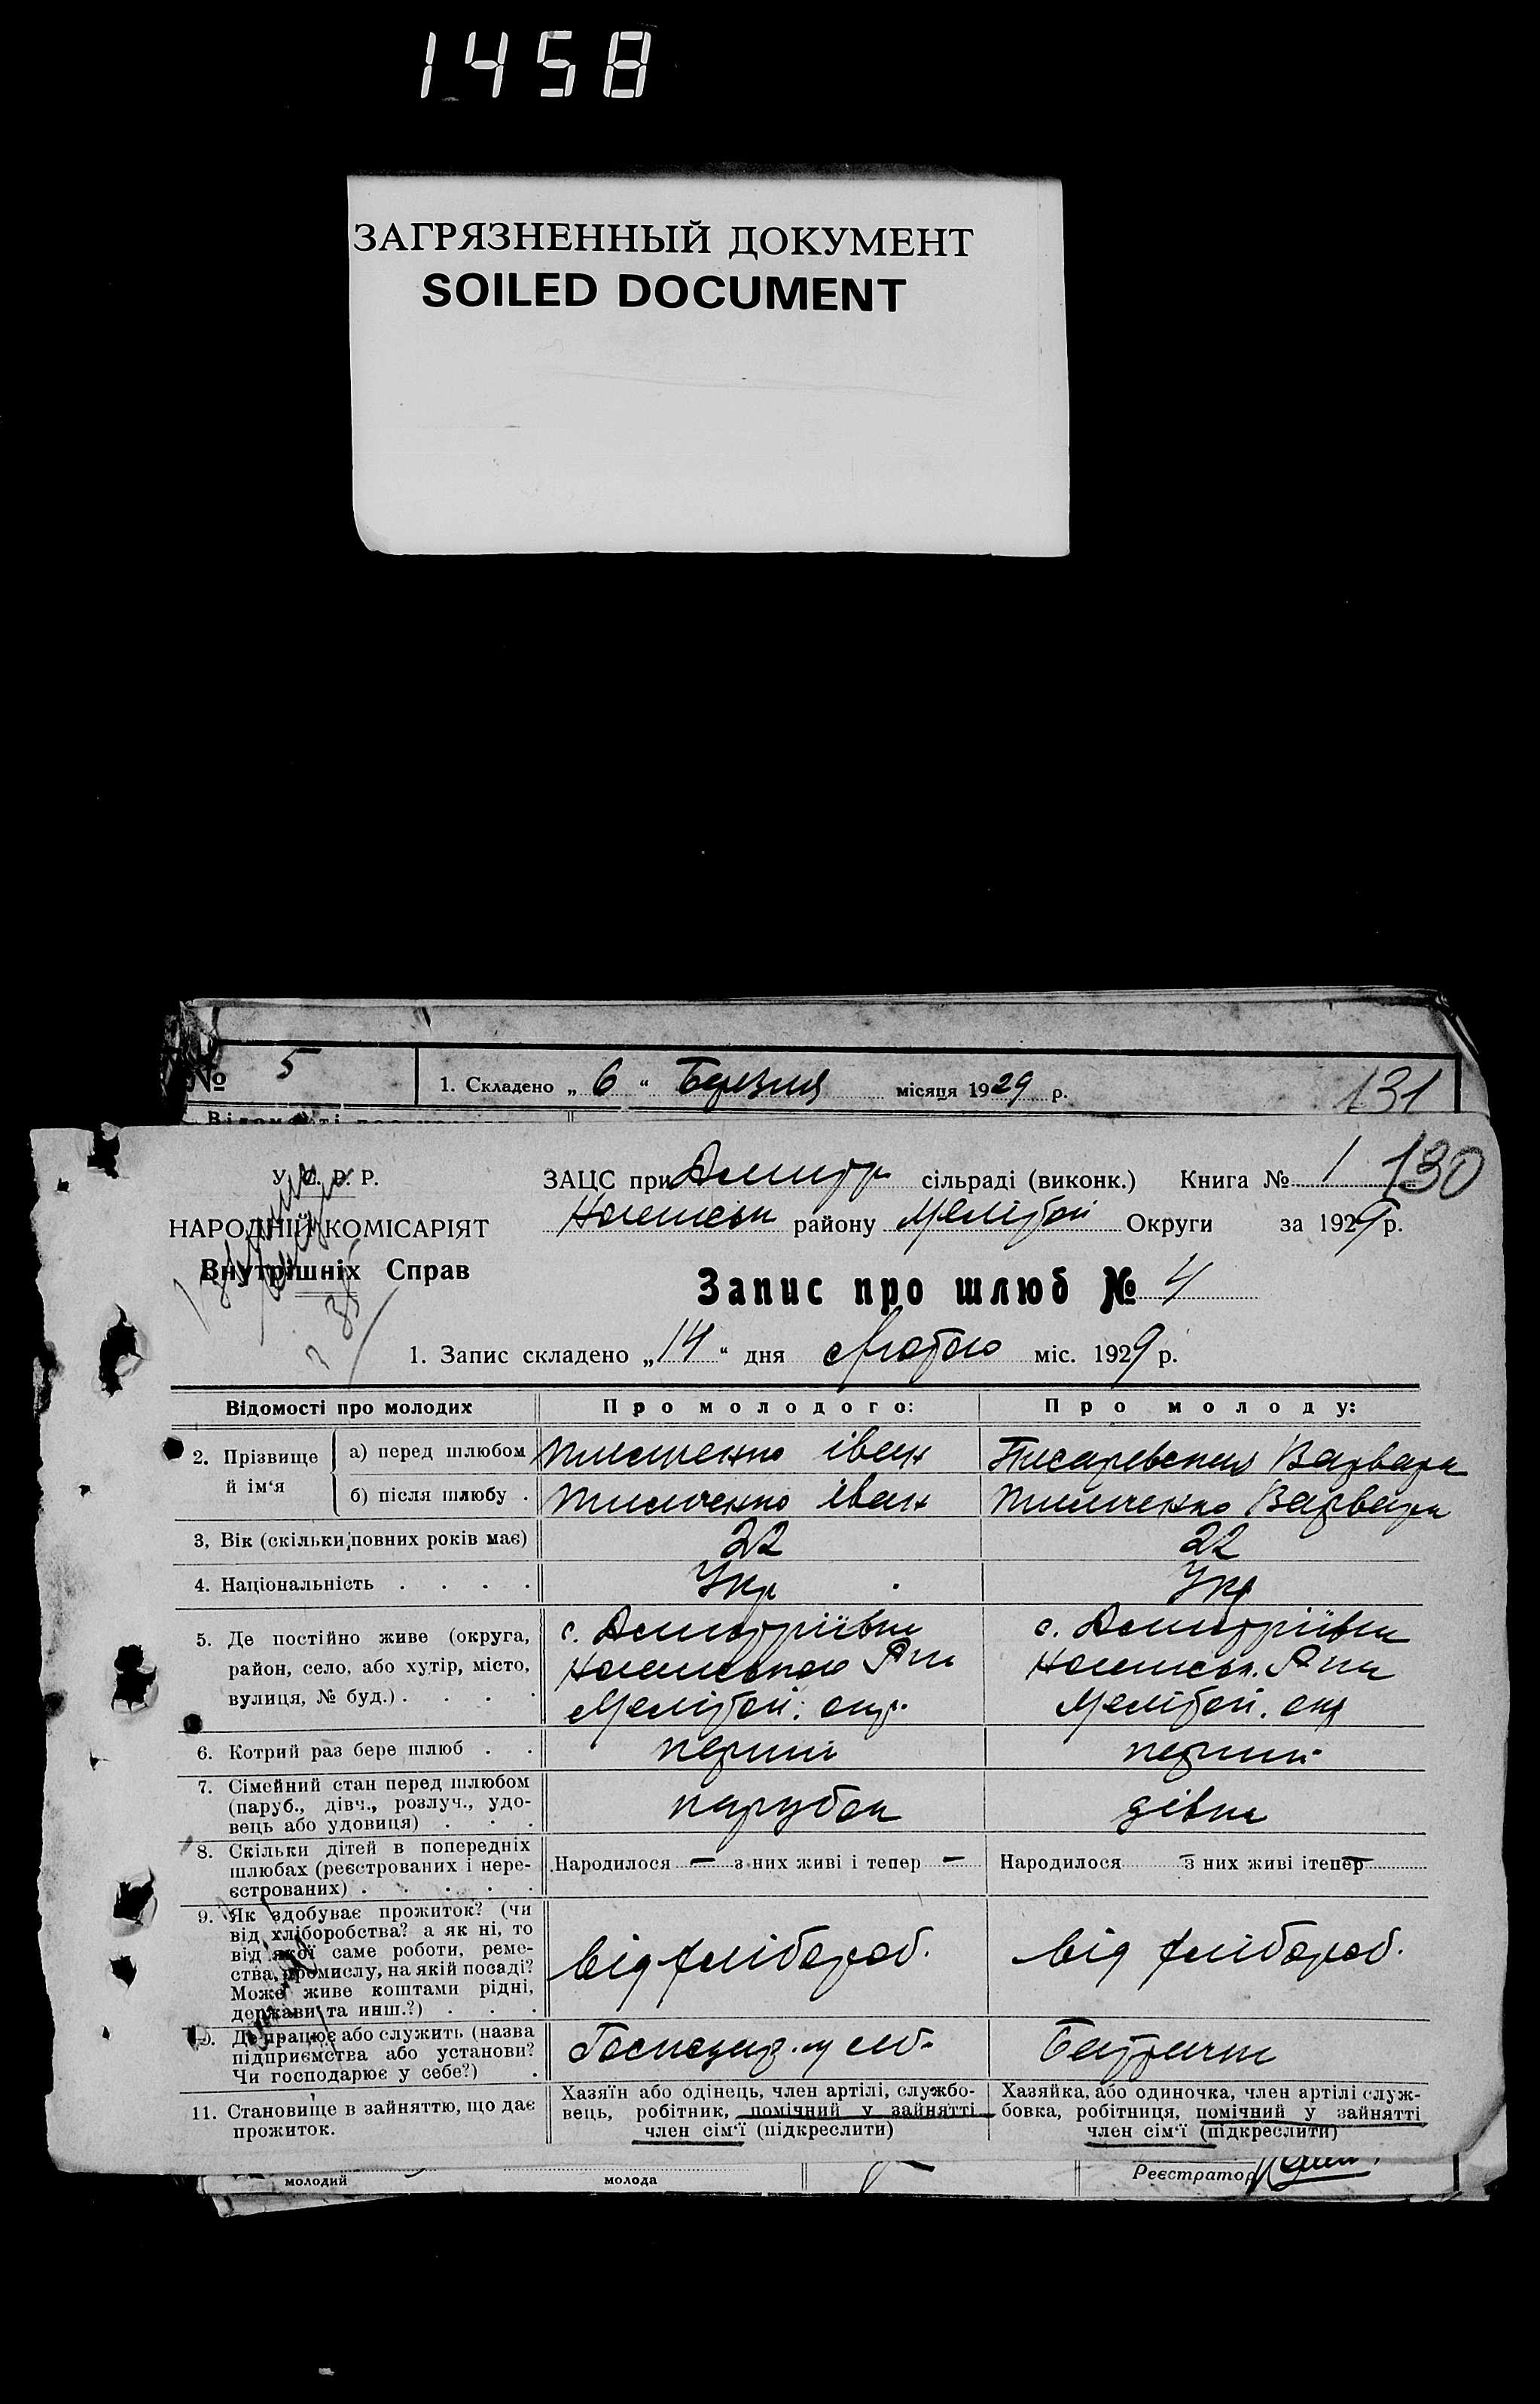 1458
ЗАГРЯЗНЕННЫЙ ДОКУМЕНТ
SOILED DOCUMENT
№ 5 1. Складено „ 6 “ Березня місяця 1929 р. 131
У. С. Р. Р.
НАРОДНІЙ КОМІСАРІЯТ
Внутрішніх Справ
ЗАЦС при Дмитр сільраді (виконк.) Книга № 1 130
району Мелітоп Округи за 1929 р.
Запис про шлюб № 4
1. Запис складено „14“ дня Лютого міс. 1929 р.
Відомості про молодих Про молодого: Про молоду:
2. Прізвище й ім‘я
а) перед шлюбом іван Писаревская Варвара
б) після шлюбу . іван Варвара
3. Вік (скільки повних років має) 22 22
4. Національність . . . . Укр Укр
5. Де постійно живе (округа,
район, село, або хутір, місто,
вулиця, № буд.) . . . .
с. Дмитріївка
Р-на
Мелітоп. окр.
с. Дмитріївка
Р-на
Мелітоп. окр
6. Котрий раз бере шлюб . . перший перший
7. Сімейний стан перед шлюбом
(паруб., дівч., розлуч., удо-
вець або удовиця) . . .
парубок дівка
8. Скільки дітей в попередніх
шлюбах (реєстрованих і нере-
єстрованих) . . . . .
Народилося — з них живі і тепер —
Народилося — з них живі і тепер —
9. Як здобуває прожиток? (чи
від хліборобства? а як ні, то
від якої саме роботи, реме-
ства, промислу, на якій посаді?
Може живе коштами рідні,
держави та инш.?) . . .
від хлібороб. від хлібороб.
10. Де працює або служить (назва
підприємства або установи?
Чи господарює у себе?) .
Господар. у себ.
11. Становище в зайняттю, що дає
прожиток.
Хазяїн або одінець, член артілі, службо-
вець, робітник, помічний у зайнятті
член сім‘ї (підкреслити)
Хазяйка, або одиночка, член артілі служ-
бовка, робітниця, помічний у зайнятті
член сім‘ї (підкреслити)
молодий молода Реєстратор